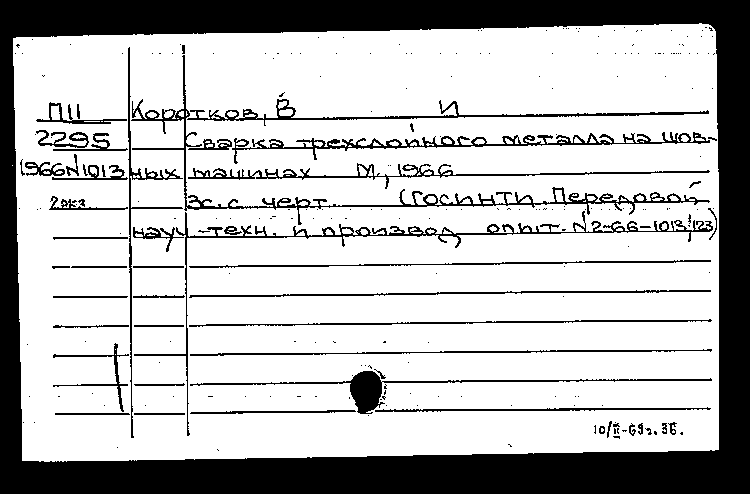 П11 Коротков, В И
2295 Сварка трехслойного металла на шов-
1966N1013 ных машинах М., 1966
2 экз 3с. с черт. (ГОСИНТИ. Передовой
науч.-техн. и производ опыт. N 2-66-1013/123)
10/II-69г. ЗБ.